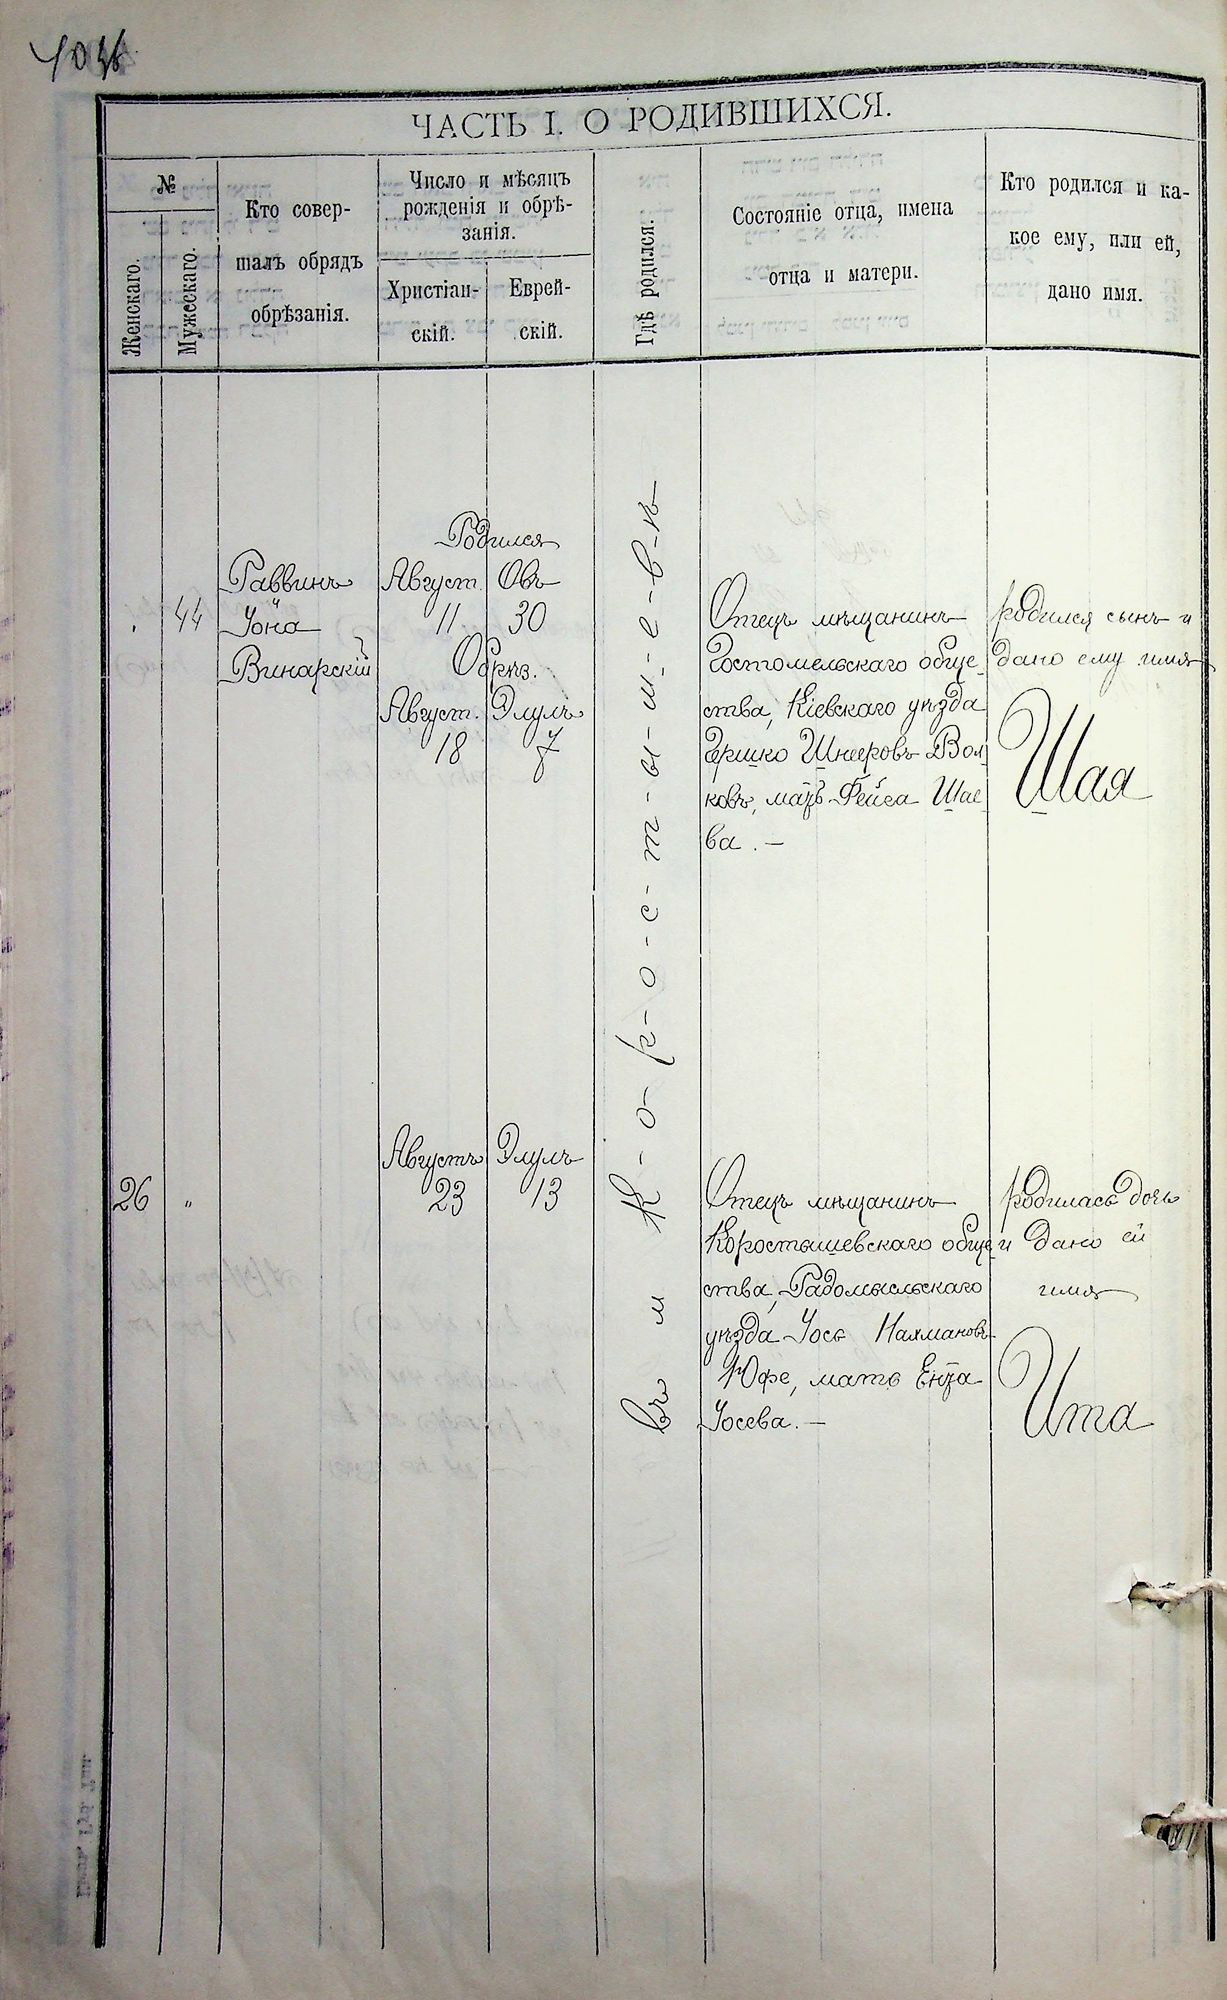 ЧАСТЬ I. О РОДИВШИХСЯ.
№
Женскаго.
Мужескаго.
Кто совер-
шалъ обрядъ
обрѣзанія.
Число и мѣсяцъ
рожденія и обрѣ-
занія.
Христіан-
скій.
Еврей-
скій.
Гдѣ родился.
Состояніе отца, имена
отца и матери.
Кто родился и ка-
кое ему, или ей,
дано имя.
44
Раввинъ
Іона
Винарскій
Родился
Август. Овъ
11 30
Обрѣз.
Август. Элулъ
18 7
Въ м К-о-р-о-с-т-ы-ш-е-в-ѣ
Отецъ мѣщанинъ
Гостомельскаго обще-
ства, Кіевскаго уѣзда
Гершко Шнееровъ Вол-
ковъ, мать Фейга Шае-
ва. —
родился сынъ и
дано ему имя
Шая
26 "
Августъ Элулъ
23 13
Отецъ мѣщанинъ
Коростышевскаго обще-
ства, Радомысльскаго
уѣзда Іось Нахмановъ
Юфе, мать Ента
Іосева. —
родилась дочь
и дано ей
имя
Ита